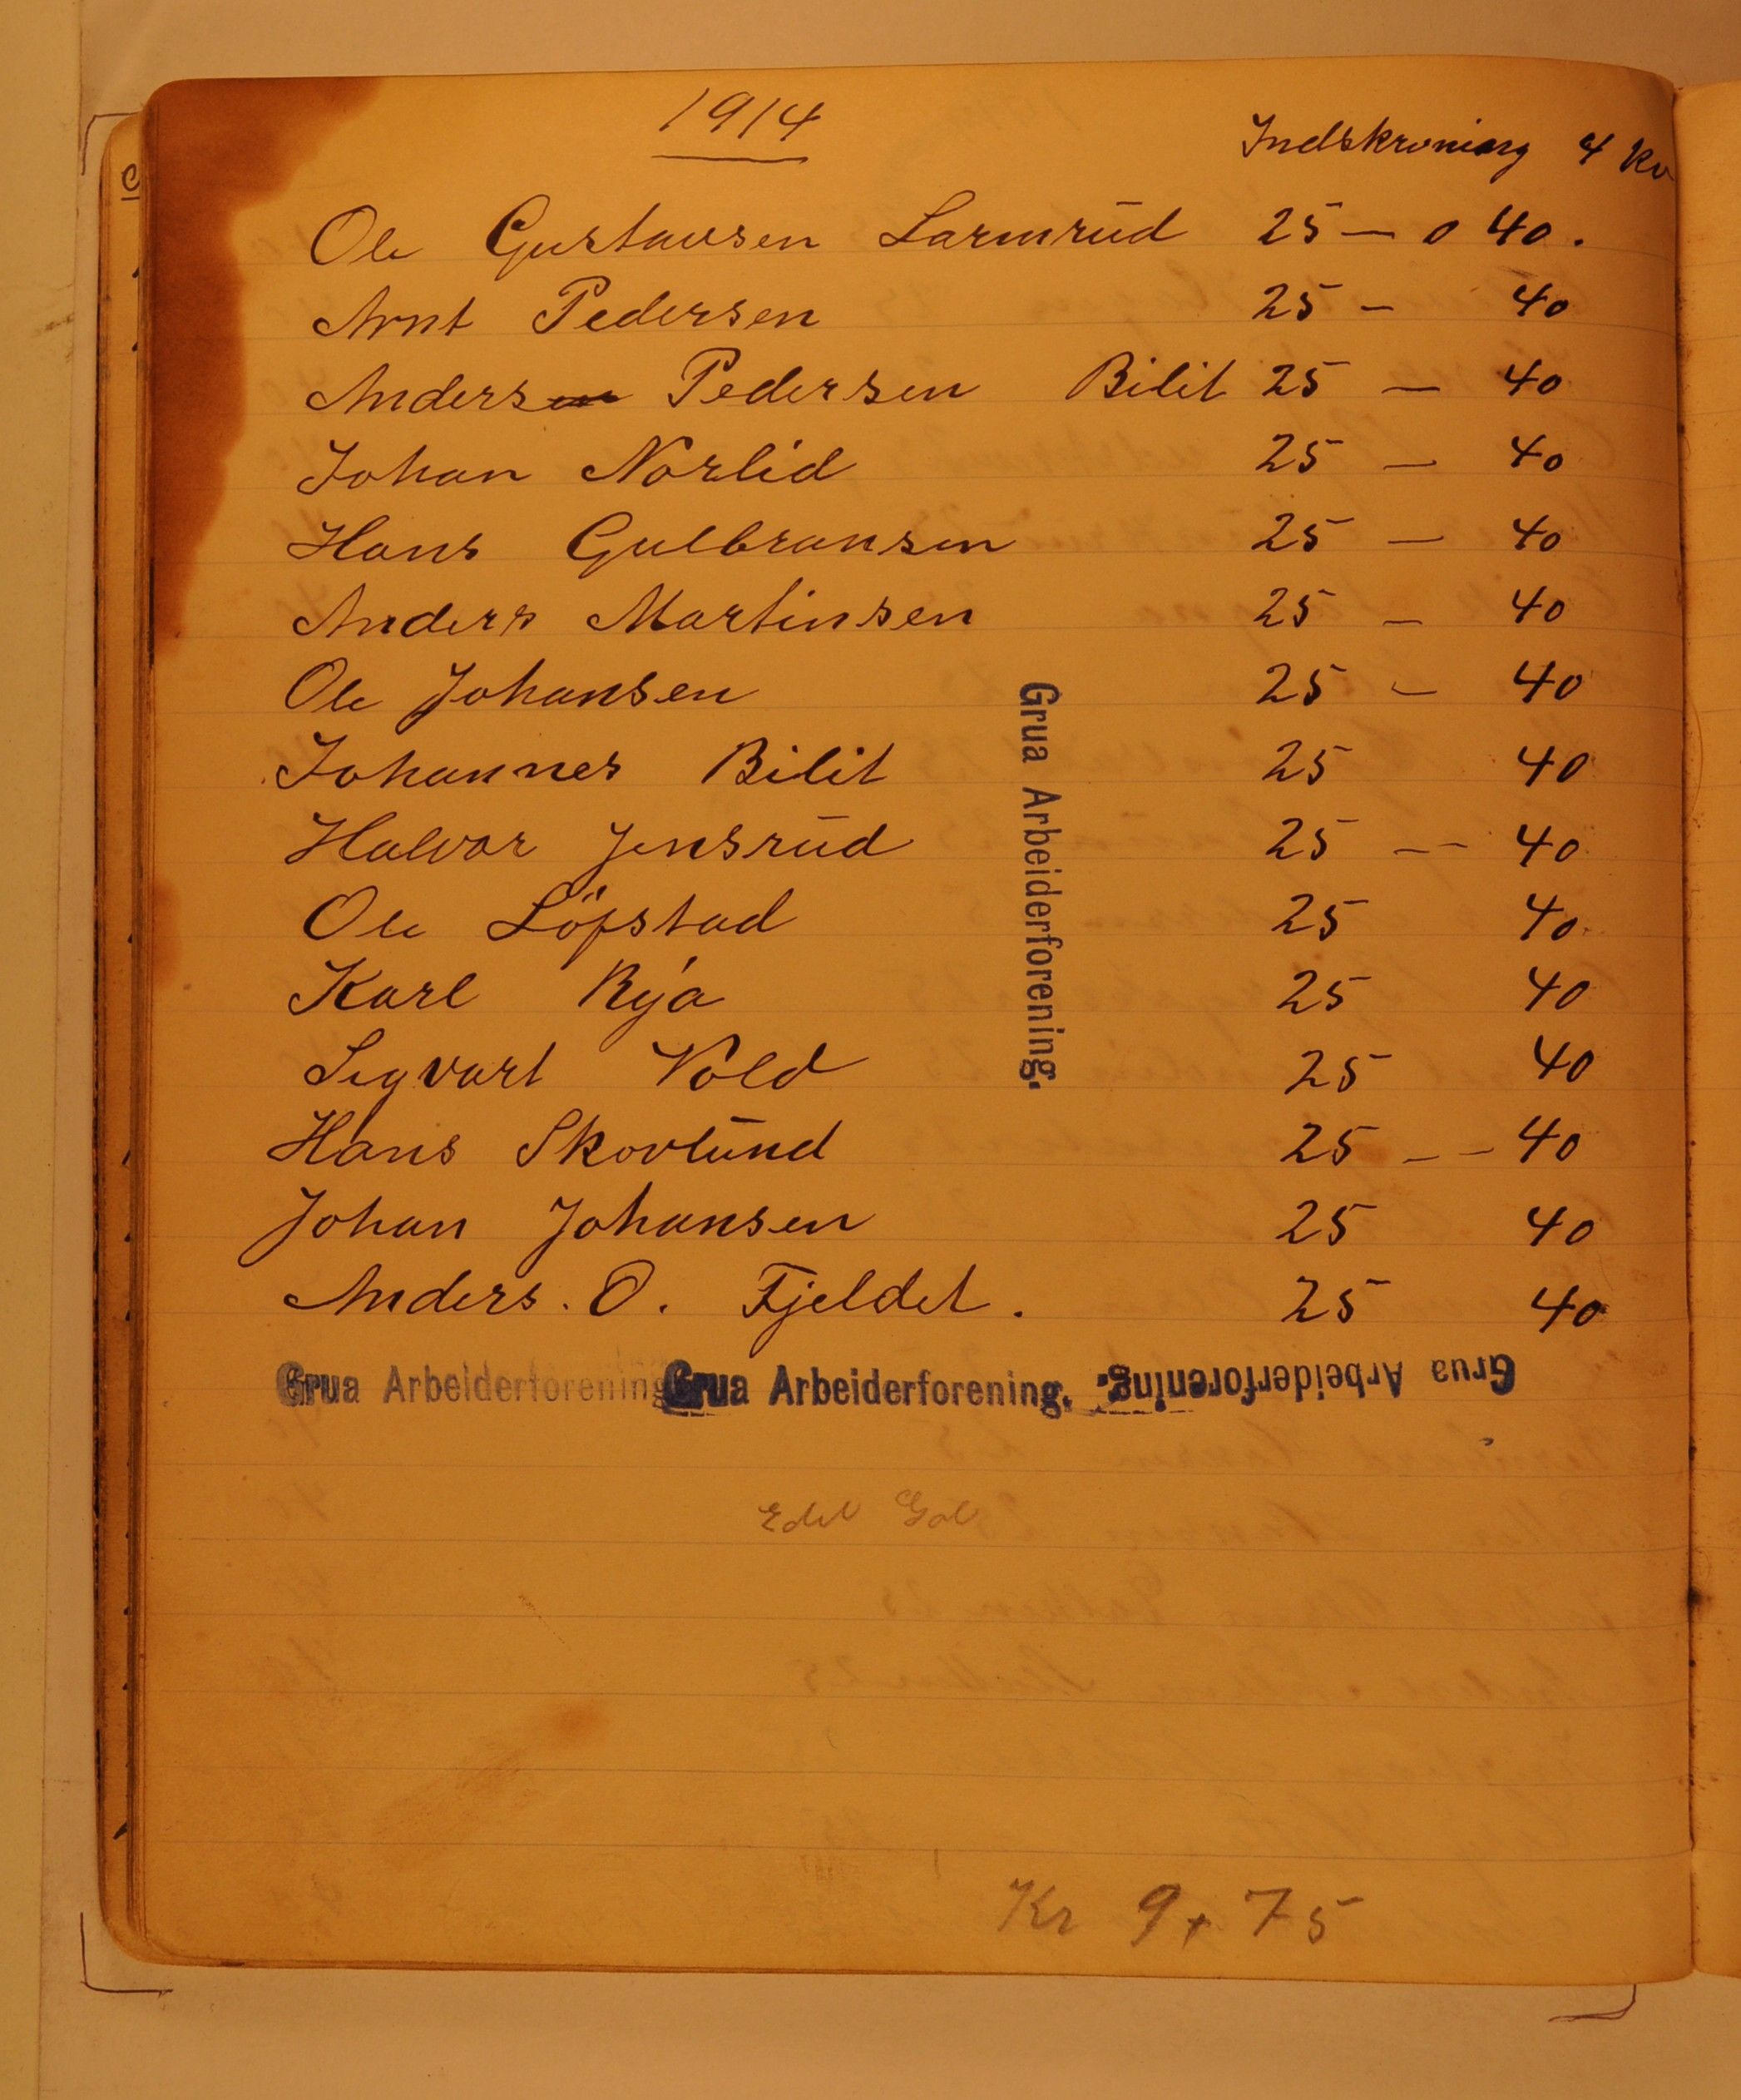 1914
Indskrivning 4 Kv
Ole Gustavsen Larmrud 25 — 0 40.
Arnt Pedersen 25 — 40
Anders Pedersen Bilit 25 — 40
Johan Norlid 25 — 40
Hans Gulbransen 25 — 40
Anders Martinsen 25 — 40
Ole Johansen 25 — 40
Johannes Bilit 25 40
Halvor Jensrud 25 — — 40
Ole Löfstad 25 40
Karl Rya 25 40
Sigvart Vold 25 40
Hans Skovlund 25 — — 40
Johan Johansen 25 40
Anders. O. Fjeldet. 25 40
Grua Arbeiderforening.
Grua Arbeiderforening Grua Arbeiderforening. Grua Arbeiderforening.
Edel
Kr 9,75